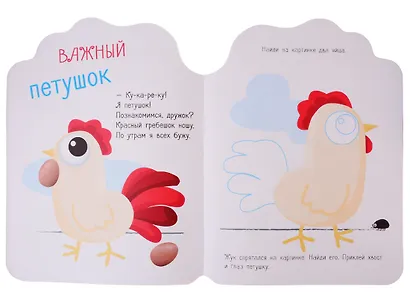 ВАЖНЫЙ
петушок
— Ку-ка-ре-ку!
Я петушок!
Познакомимся, дружок?
Красный гребешок ношу,
По утрам я всех бужу.
Найди на картинке два яйца.
Жук спрятался на картинке. Найди его. Приклей хвост
и глаз петушку.